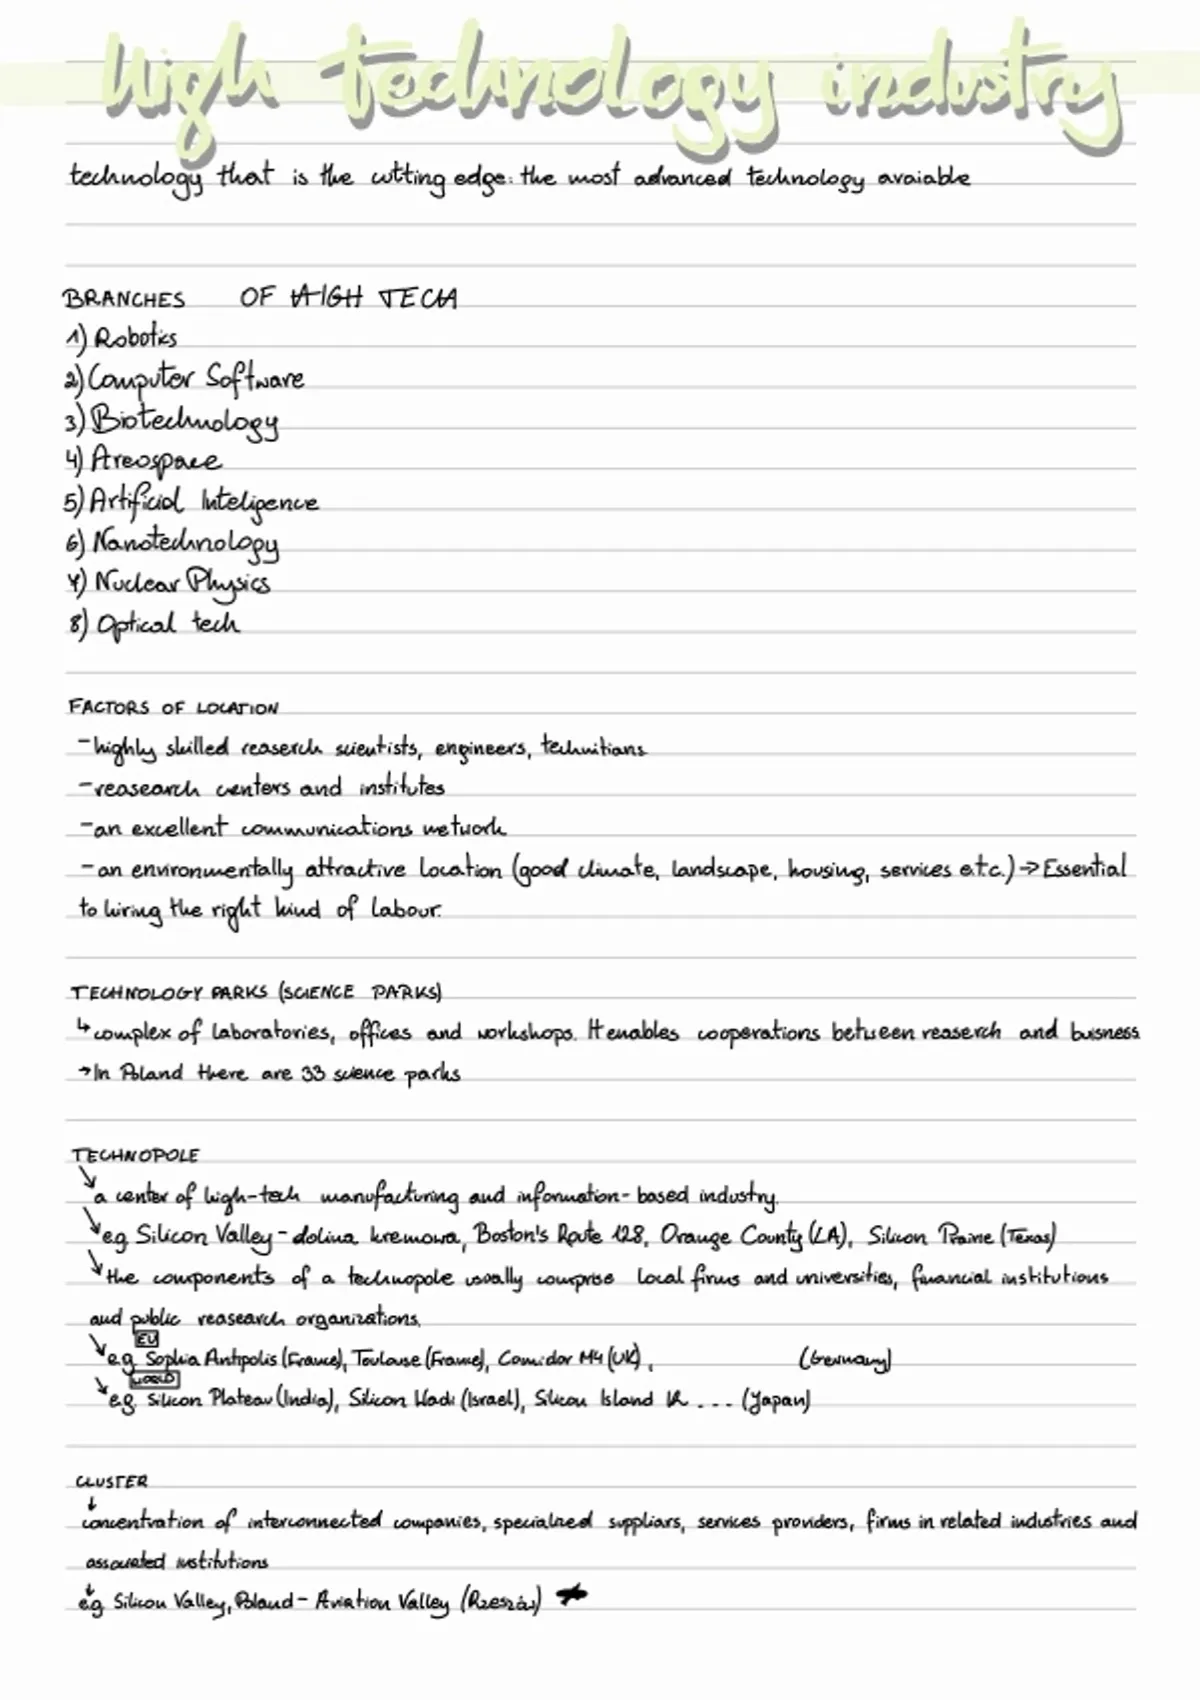 high technology industry
technology that is the cutting edge: the most advanced technology avaiable
BRANCHES OF HIGH TECH
1) Robotics
2) Computer Software
3) Biotechnology
4) Areospace
5) Artificial Inteligence
6) Nanotechnology
7) Nuclear Physics
8) Optical tech
FACTORS OF LOCATION
- highly skilled reaserch scientists, engineers, technitians
- reasearch centers and institutes
- an excellent communications network
- an environmentally attractive location (good climate, landscape, housing, services e.t.c.) → Essential
to hiring the right kind of labour.
TECHNOLOGY PARKS (SCIENCE PARKS)
↳ complex of laboratories, offices and workshops. It enables cooperations between reaserch and buisness
→ In Poland there are 33 science parks
TECHNOPOLE
↘ a center of high-tech manufacturing and information-based industry.
↘ e.g. Silicon Valley - dolina kremowa, Boston's Route 128, Orange County (LA), Silicon Prairie (Texas)
↘ the components of a technopole usually comprise local firms and universities, financial institutions
and public reasearch organizations.
EU
↘ e.g. Sophia Antipolis (France), Toulouse (France), Corridor M4 (UK), (Germany)
WORLD
↘ e.g. Silicon Plateau (India), Silicon Wadi (Israel), Silicon Island K ... (Japan)
CLUSTER
↓
concentration of interconnected companies, specialized suppliars, services providers, firms in related industries and
associated institutions
↓
e.g. Silicon Valley, Poland - Aviation Valley (Rzeszów)